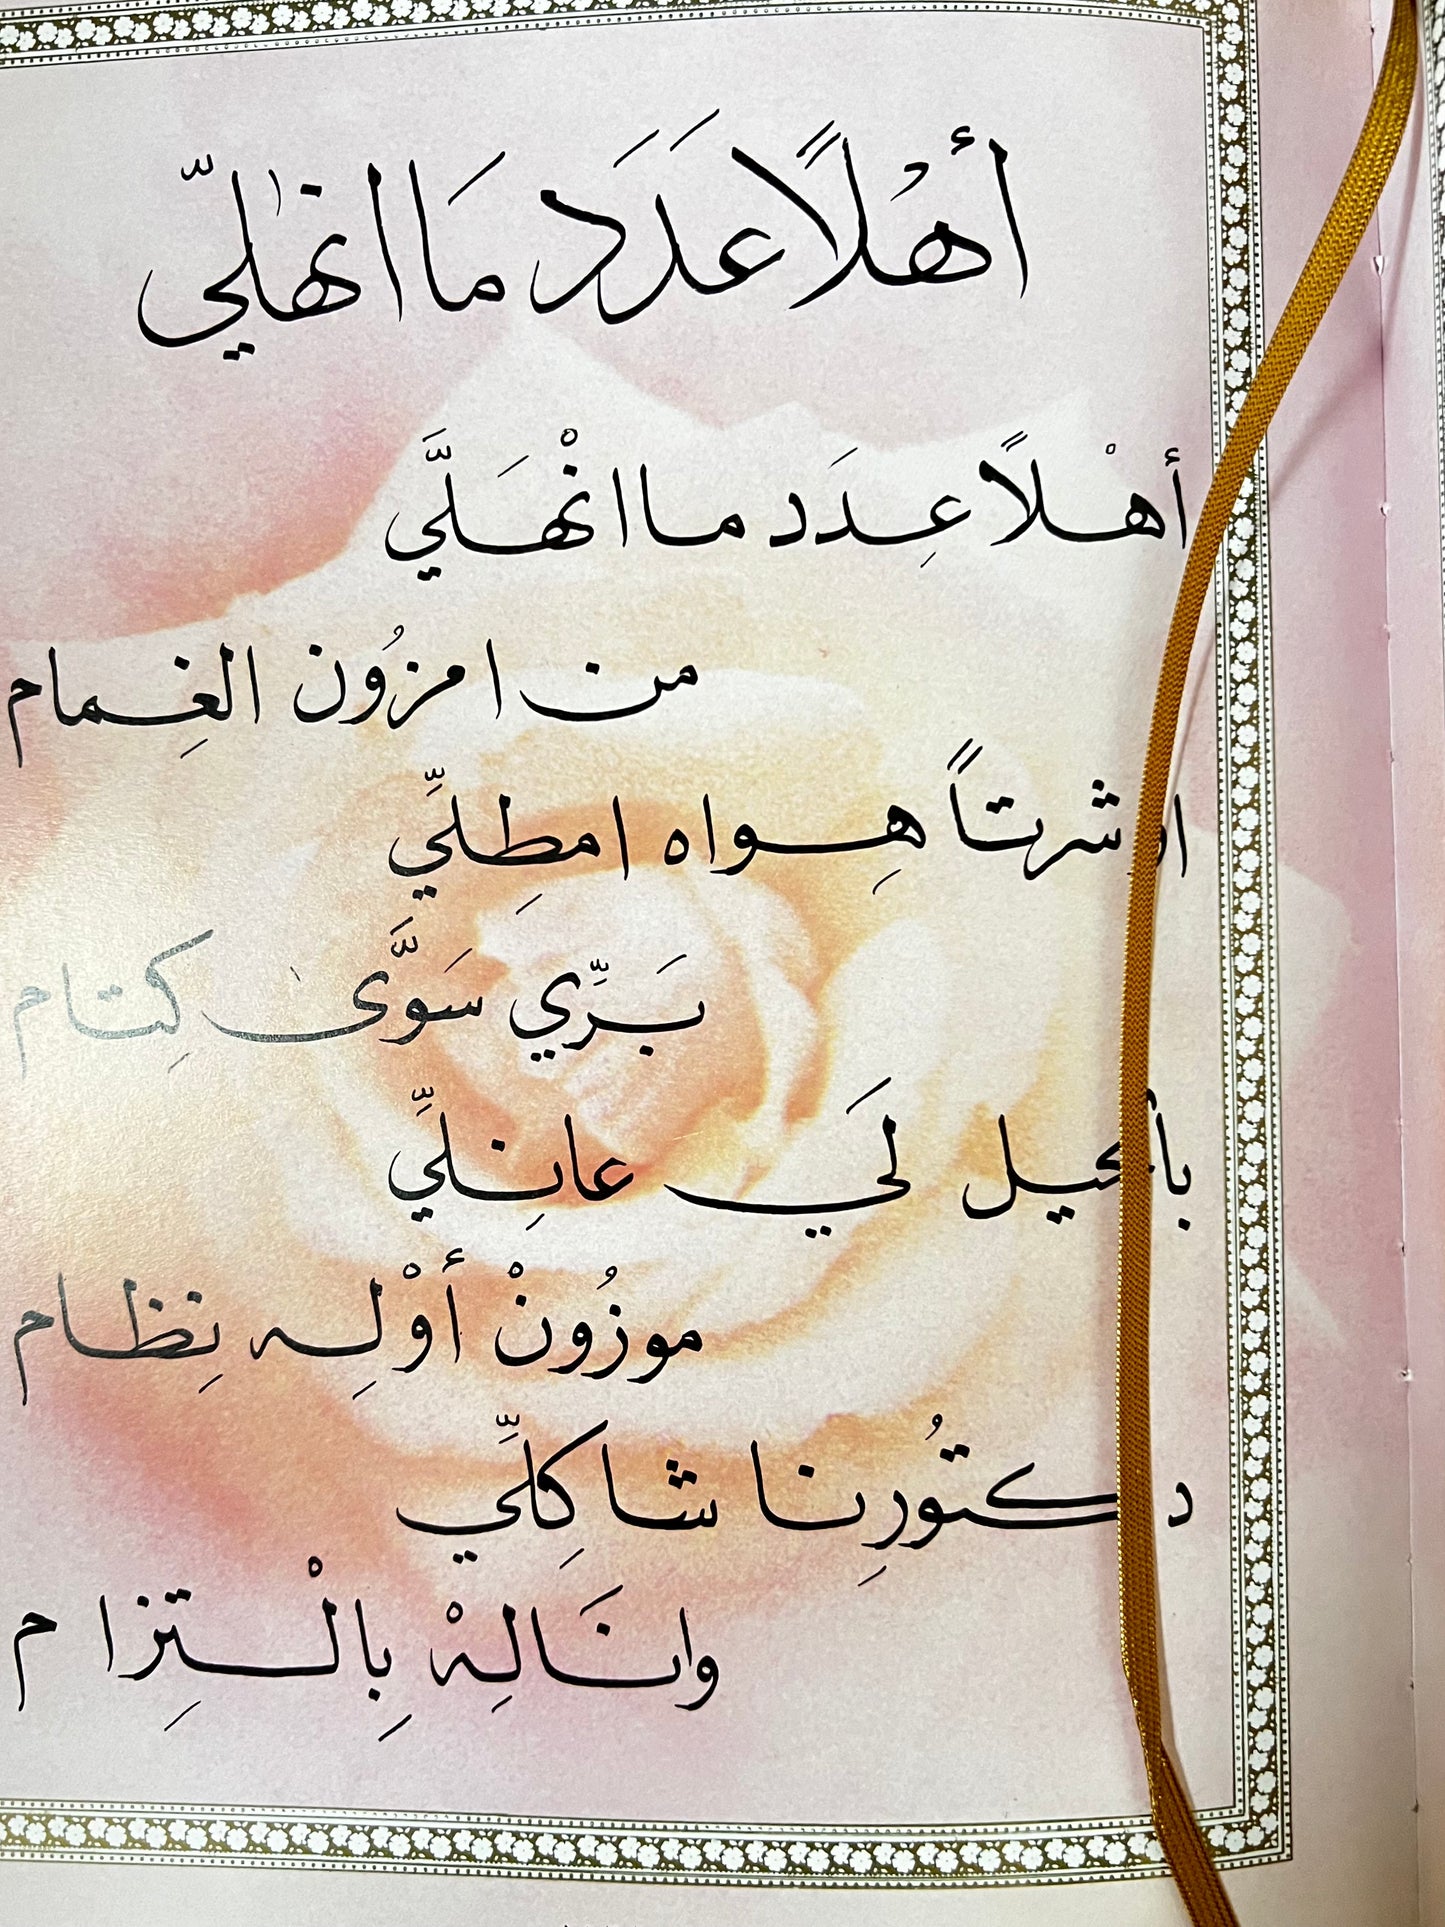 أهْلًا عَدَد مَا انهٰليّ
أهْلًا عِدَد ما انْهَلَّي
من امزُون الغِمام
شرتاً هِواه امطِلِّي
بَرِّي سَوَّى كِتام
لَي عانِلِّي
موزُونْ أوْلِه نِظام
دكتُورِنا شاكِلِّي
وانَالِهْ بِالْتِزام